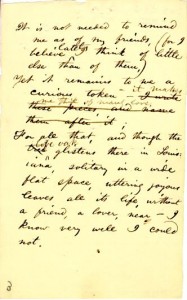 It is not needed to remind
me as of my friends, (for I
believe lately I think of little
else than of them)
Yet it remains to me a
curious token — I wrote
those pieces and name
them after it
For all that, and though the
live oak
glistens there in Louis-
iana, solitary in a wide
flat space, uttering joyous
leaves all its life, without
a friend, a lover, near — I
know very well I could
not.